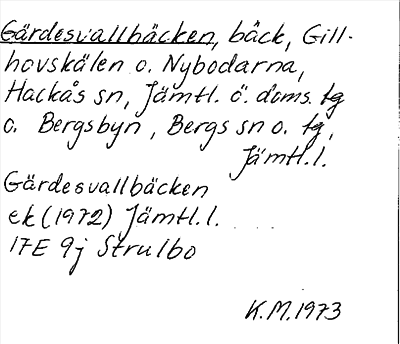 Gärdesvallbäcken, bäck, Gill-
hovskälen o. Nybodarna,
Hackås sn, Jämtl. ö. doms. tg
o. Bergsbyn, Bergs sn o. tg,
Jämtl.l.
Gärdesvallbäcken
ek (1972) Jämtl.l.
17E 9j Strulbo
K.M.1973